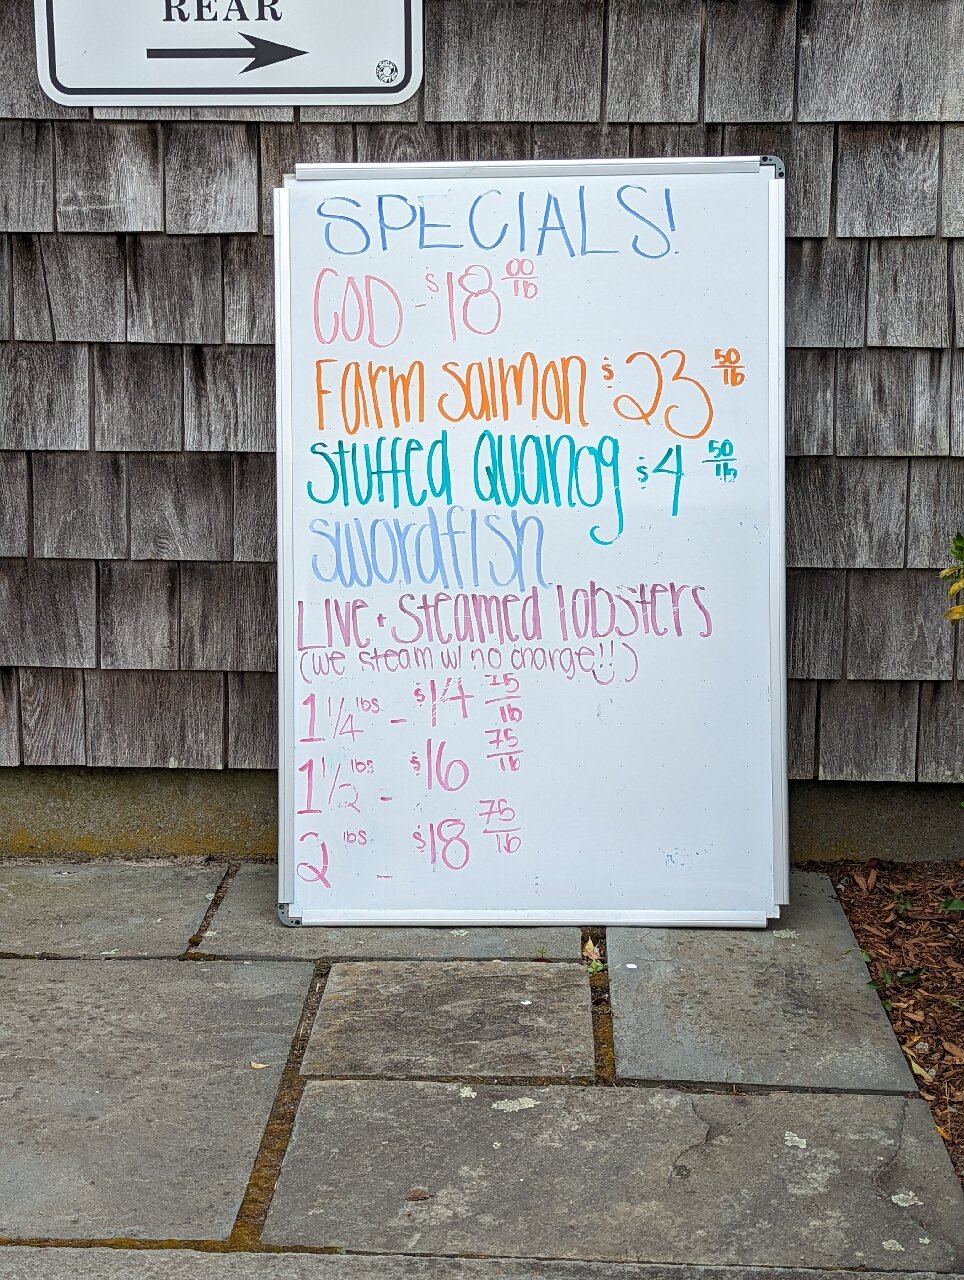 REAR
SPECIALS!
COD - $18 00/lb
Farm Salmon $23 50/lb
Stuffed Quahog $4 50/lb
Swordfish
Live + Steamed lobsters
(we steam w/ no charge!!)
1 1/4 lbs - $14 75/lb
1 1/2 lbs - $16 75/lb
2 lbs - $18 75/lb